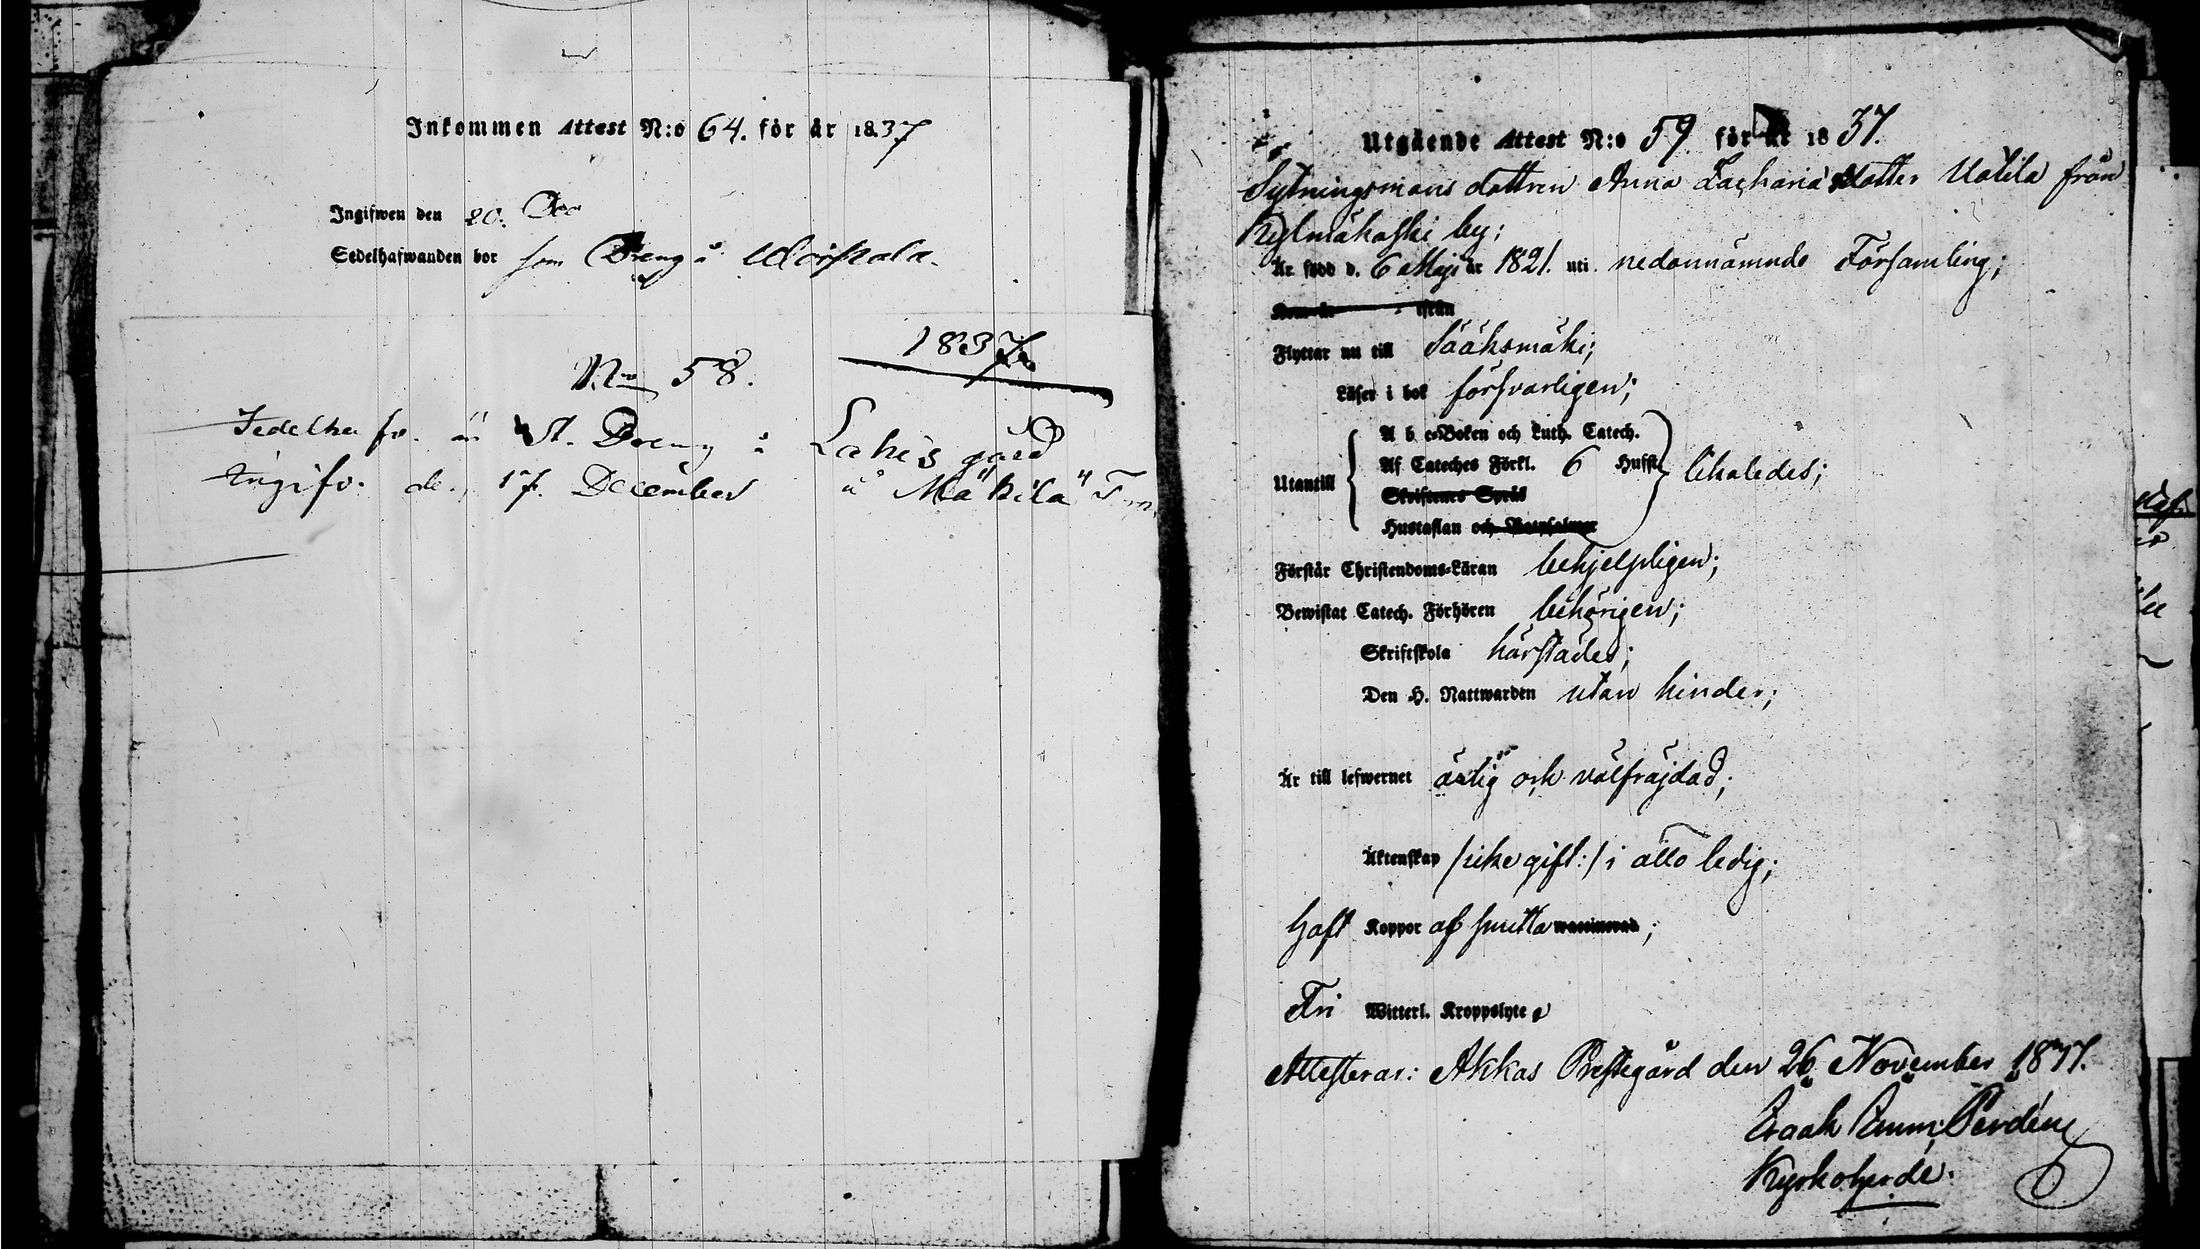 Inkommen Attest N:o 64. för år 1837
Ingifwen den 20. Dec
Sedelhafwanden bor som Dreng å
1837
No 58.
Sedelhafv. är St. Dreng å Lahis gård
Ingifv. den 17. December å "Mäkilä"
Utgående Attest N:o 59 för år 1837.
Sytningsmans dottren Anna Zachariæ dotter Uotila från
Kylmäkoski by;
Är född d. 6 Maji år 1821. uti nedannämnde Församling;
Kom år ifrån
Flyttar nu till Sääksmäki;
Läser i bok försvarligen;
A b c-Boken och Luth. Catech.
Af Cateches Förkl. 6 Hufst.
Utantill likaledes;
Skriftenes Språk
Hustaflan och Botpsalmer
Förstår Christendoms-Läran behjelpligen;
Bewistat Catech. Förhören behörigen;
Skriftskola härstädes;
Den H. Nattwarden utan hinder;
Är till lefwernet ärlig och välfräjdad;
Äktenskap /:icke gift:/ i allo ledig;
Haft Koppor af smitta waccinerad;
Fri Witterl. Kroppslyte
Attesterar: Akkas Prestegård den 26 November 1837.
Isaak Emm; Perdén
Kyrkoherde.